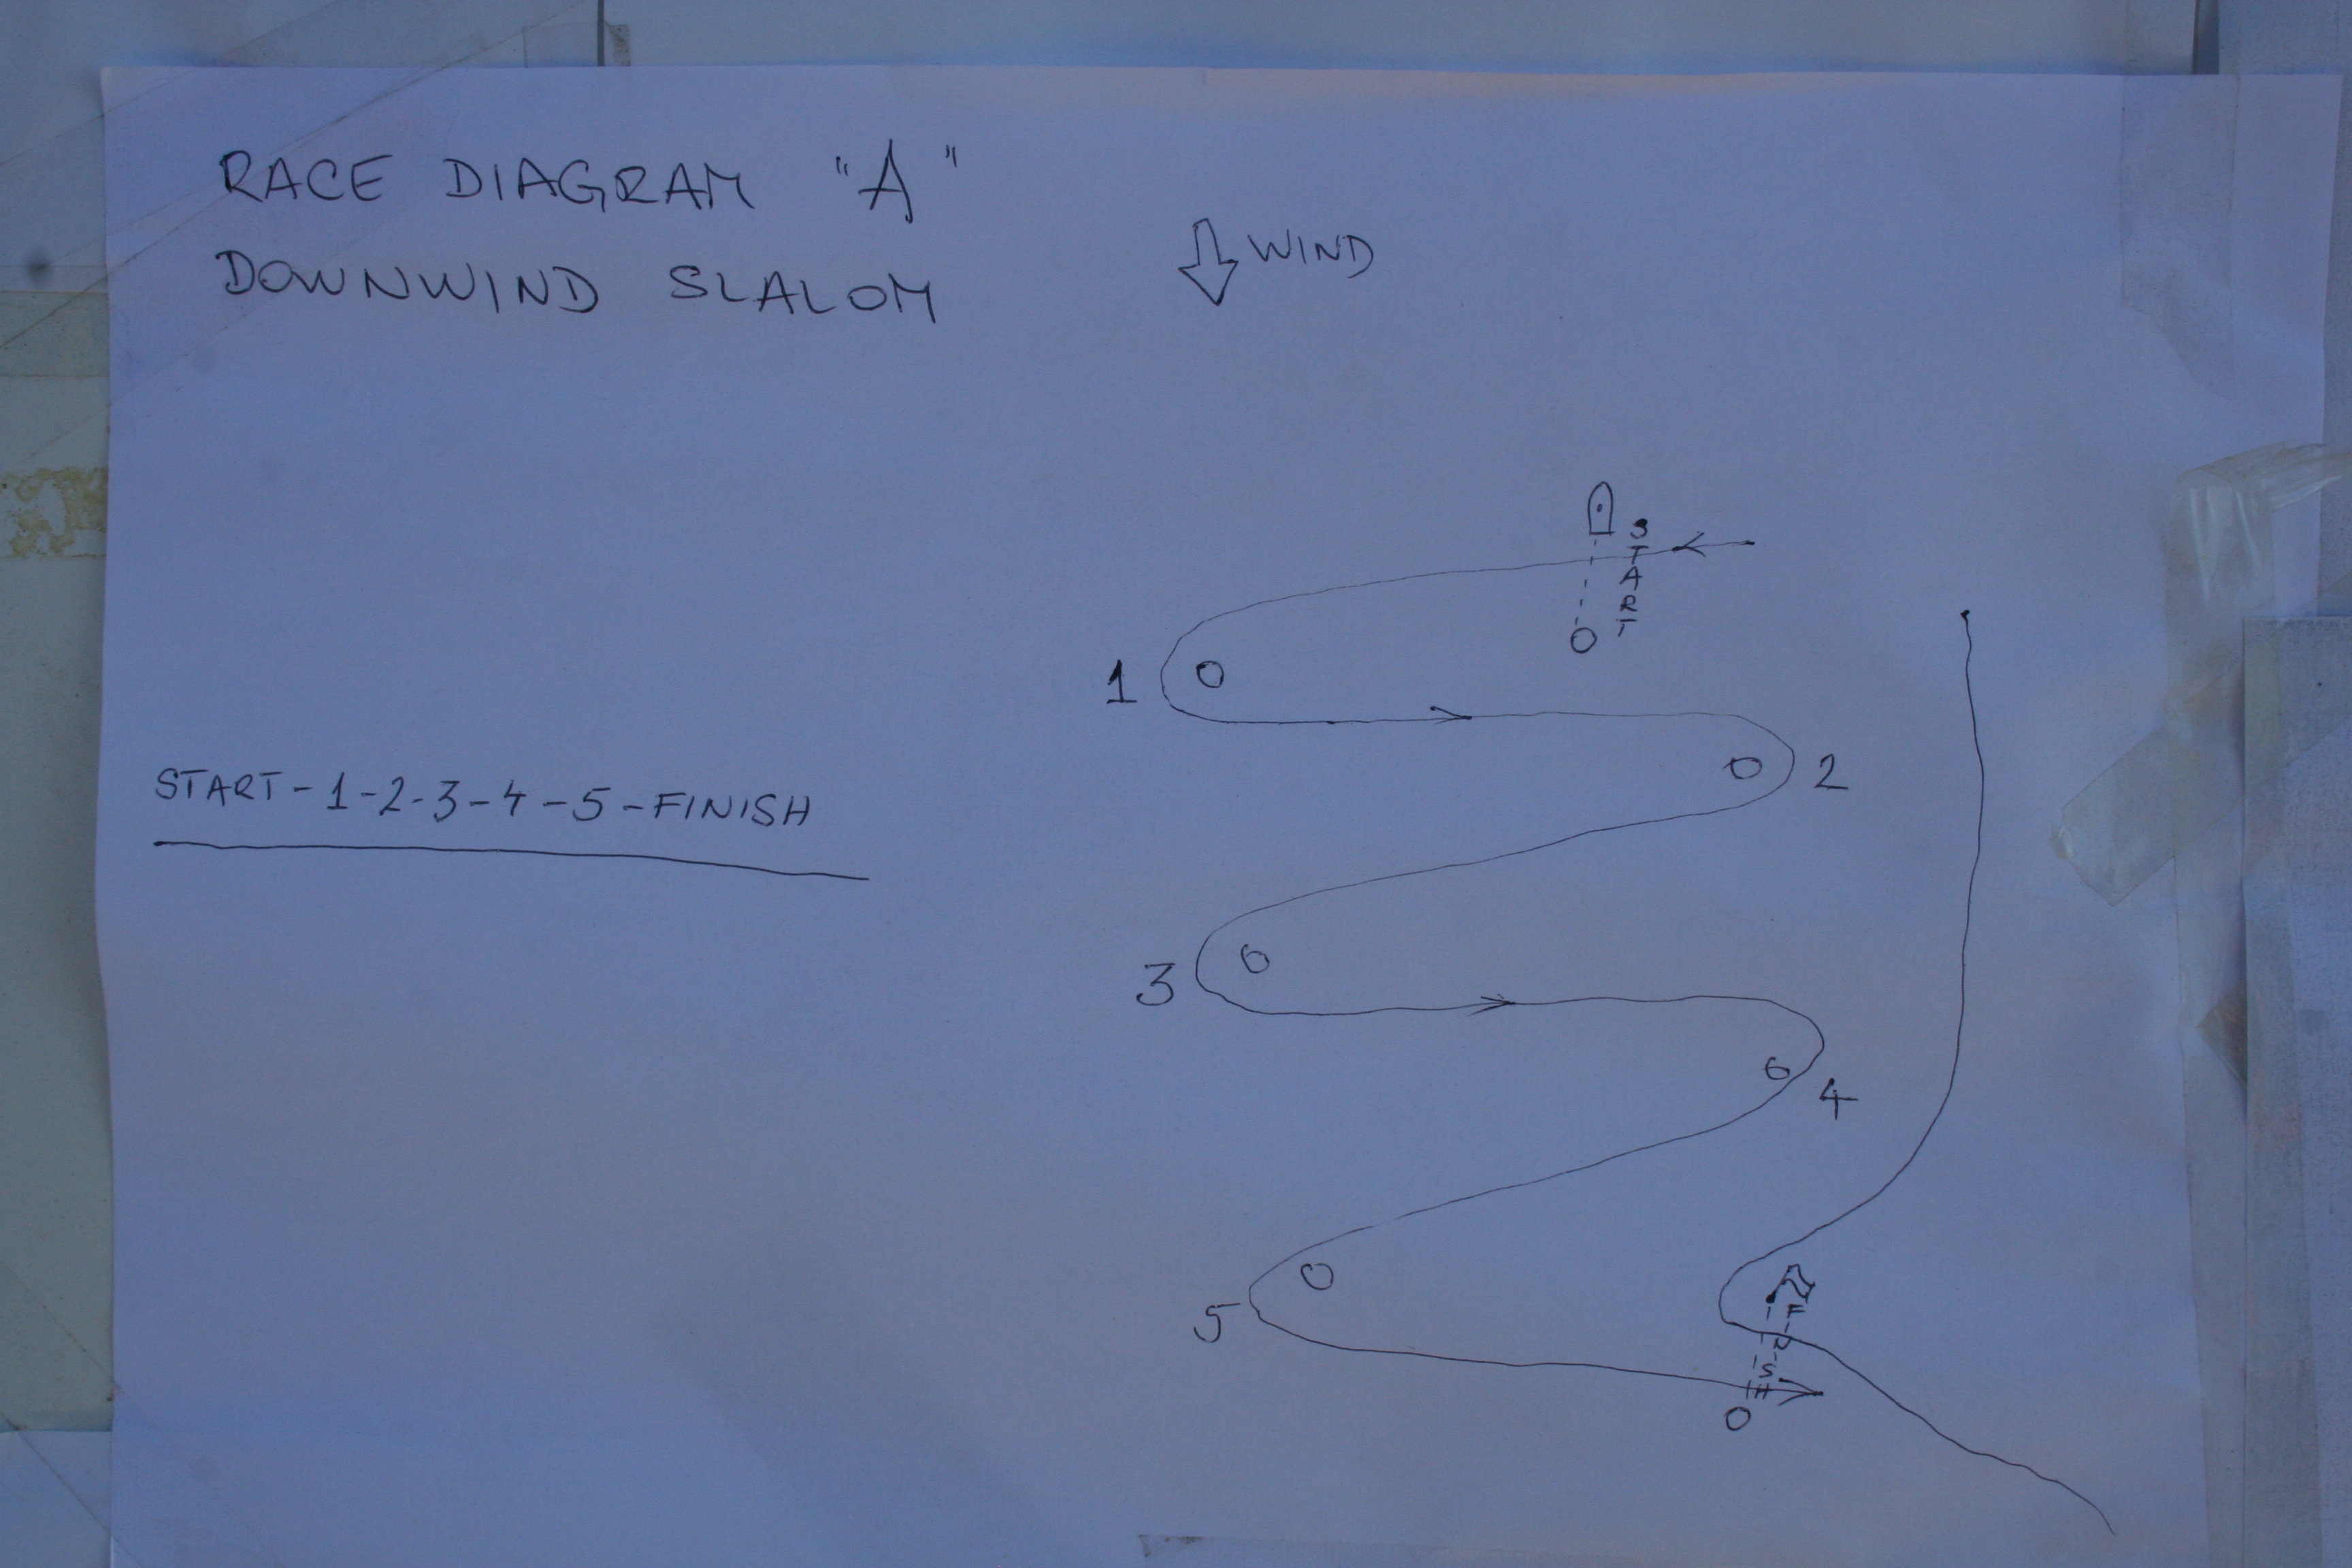 RACE DIAGRAM "A"
DOWNWIND SLALOM
WIND
START
1
2
START-1-2-3-4-5-FINISH
3
4
5
FINISH